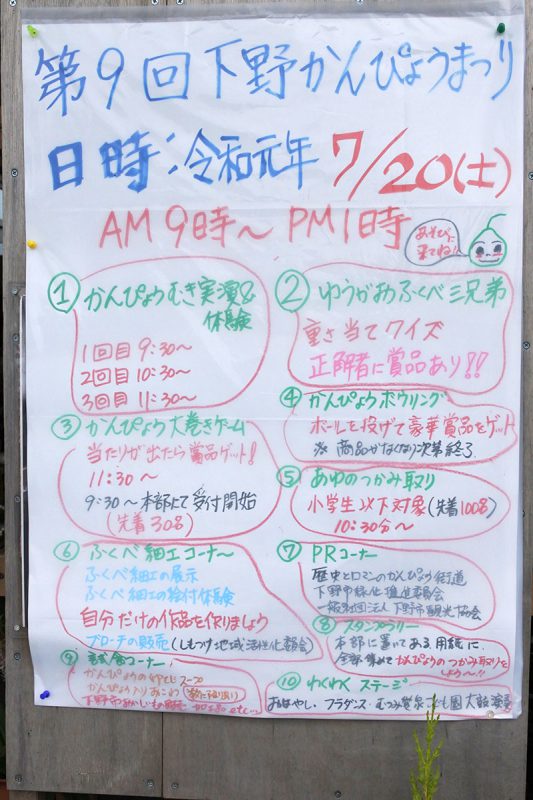 第9回下野かんぴょうまつり
日時:令和元年 7/20(土)
AM 9時〜 PM 1時
あそびに来てね!
① かんぴょうむき実演&体験
1回目 9:30〜
2回目 10:30〜
3回目 11:30〜
② ゆうがおふくべ三兄弟
重さ当てクイズ
正解者に賞品あり!!
③ かんぴょう大巻きゲーム
当たりが出たら賞品ゲット!
11:30〜
9:30〜本部にて受付開始
(先着30名)
④ かんぴょうボウリング
ボールを投げて豪華賞品をゲット
※ 商品がなくなり次第終了
⑤ あゆのつかみ取り
小学生以下対象(先着100名)
10:30分〜
⑥ ふくべ細工コーナー
ふくべ細工の展示
ふくべ細工の絵付体験
自分だけの作品を作りましょう
ブローチの販売(しもつけ地域活性化委員会)
⑦ PRコーナー
歴史とロマンのかんぴょう街道
下野市緑化推進委員会
一般社団法人 下野市観光協会
⑧ スタンプラリー
本部に置いてある用紙に、
全部集めてかんぴょうのつかみ取りをしよう〜!!
⑨ 試食コーナー
かんぴょうの卵とじスープ
かんぴょう入りおこわ
⑩ わくわく ステージ
おはやし・フラダンス・むつみ愛泉こども園太鼓演奏